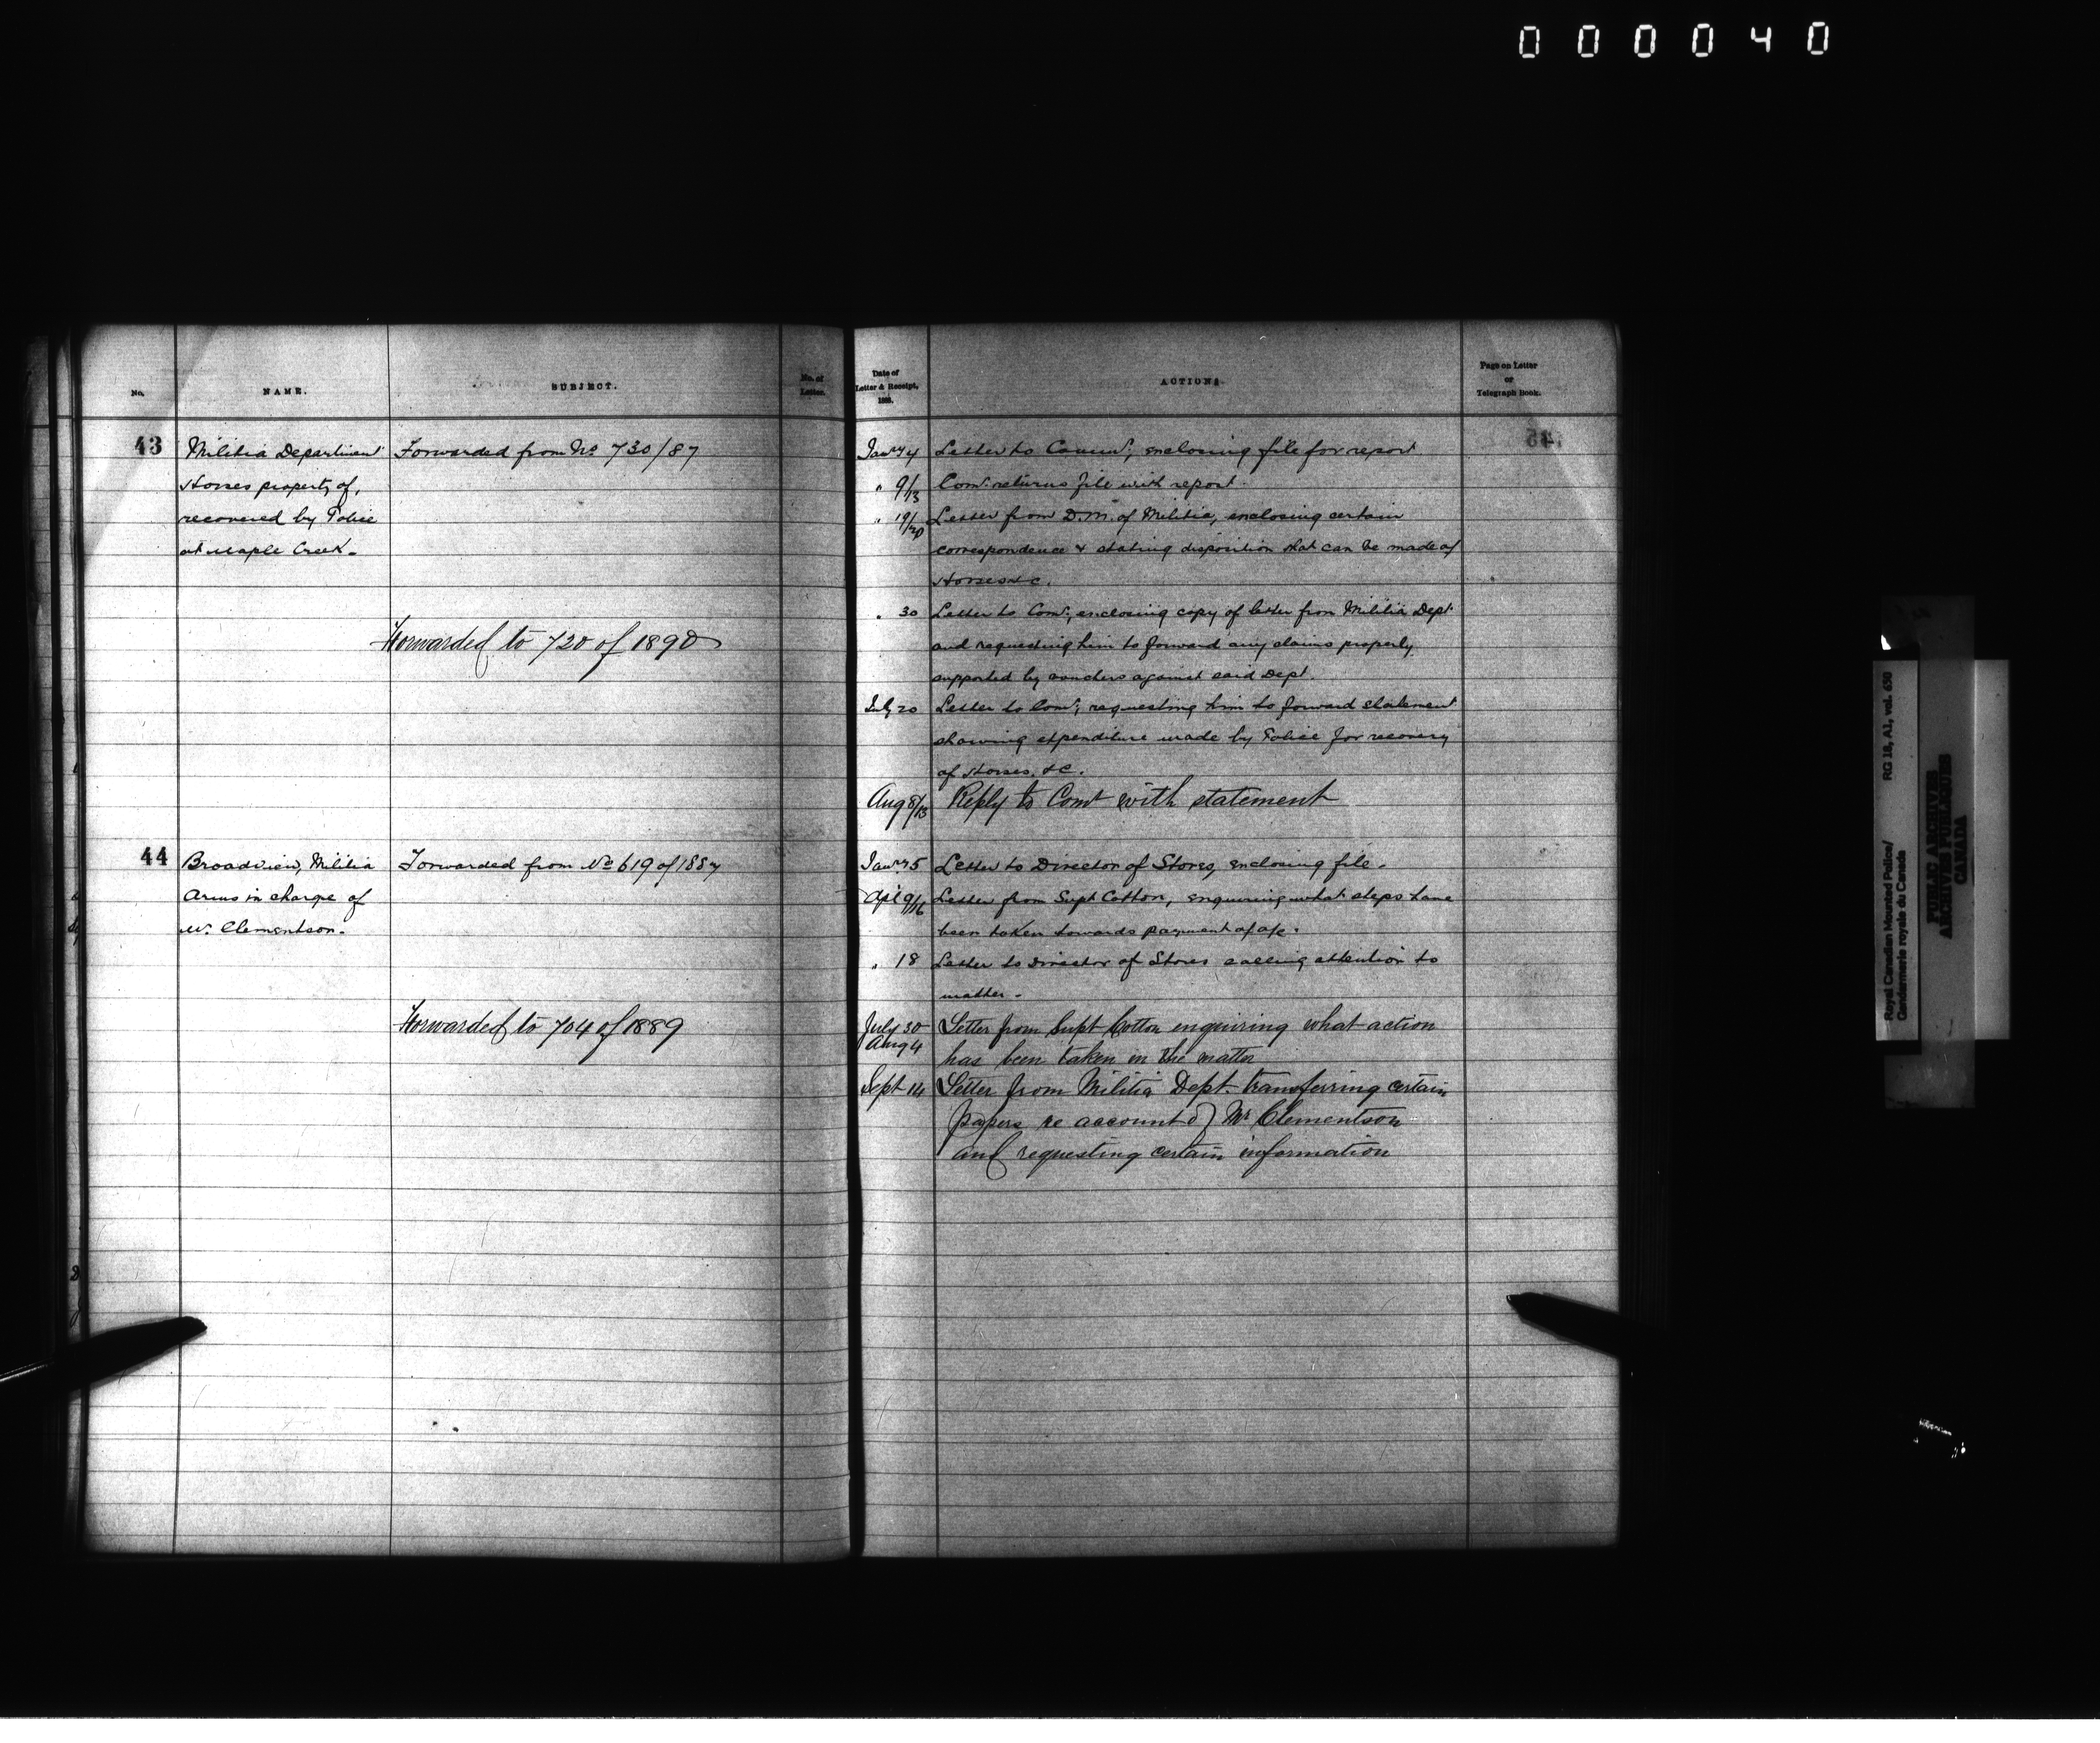 000040
No.
NAME.
SUBJECT.
No. of
Letter.
43
Militia Department
Horses property of,
recovered by Police
at Maple Creek.
Forwarded from No 730/87
Forwarded to 720 of 1890
44
Broadview, Militia
Arms in charge of
Mr. Clementson.
Forwarded from No 619 of 1887
Forwarded to 704 of 1889
Date of
Letter & Receipt,
1888.
ACTIONS.
Page on Letter
or
Telegraph Book.
Jany 4 Letter to Commr, enclosing file for report
" 9/13 Comr. returns file with report.
" 19/20 Letter from D.M. of Militia, enclosing certain
correspondence & stating disposition that can be made of
Horses &c.
" 30 Letter to Comr, enclosing copy of letter from Militia Dept
and requesting him to forward any claims properly
supported by vouchers against said Dept.
July 20 Letter to Comr, requesting him to forward statement
showing expenditure made by Police for recovery
of Horses, &c.
Aug 8/13 Reply to Comr with statement
Jany 5 Letter to Director of Stores, enclosing file.
Apl 9/16 Letter from Supt Cotton, enquiring what steps have
been taken towards payment of a/c.
" 18 Letter to Director of Stores calling attention to
matter.
July 30 Letter from Supt Cotton enquiring what action
Aug 4 has been taken in the matter
Sept 14 Letter from Militia Dept. transferring certain
papers re account of Mr Clementson
and requesting certain information
Royal Canadian Mounted Police/
Gendarmerie royale du Canada
RG 18, A1, vol. 650
PUBLIC ARCHIVES
ARCHIVES PUBLIQUES
CANADA